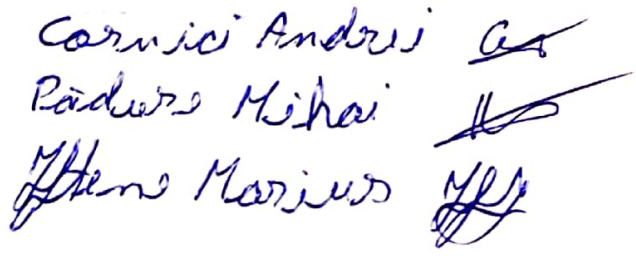 Cornici Andrei
Pădure Mihai
Iftene Marius